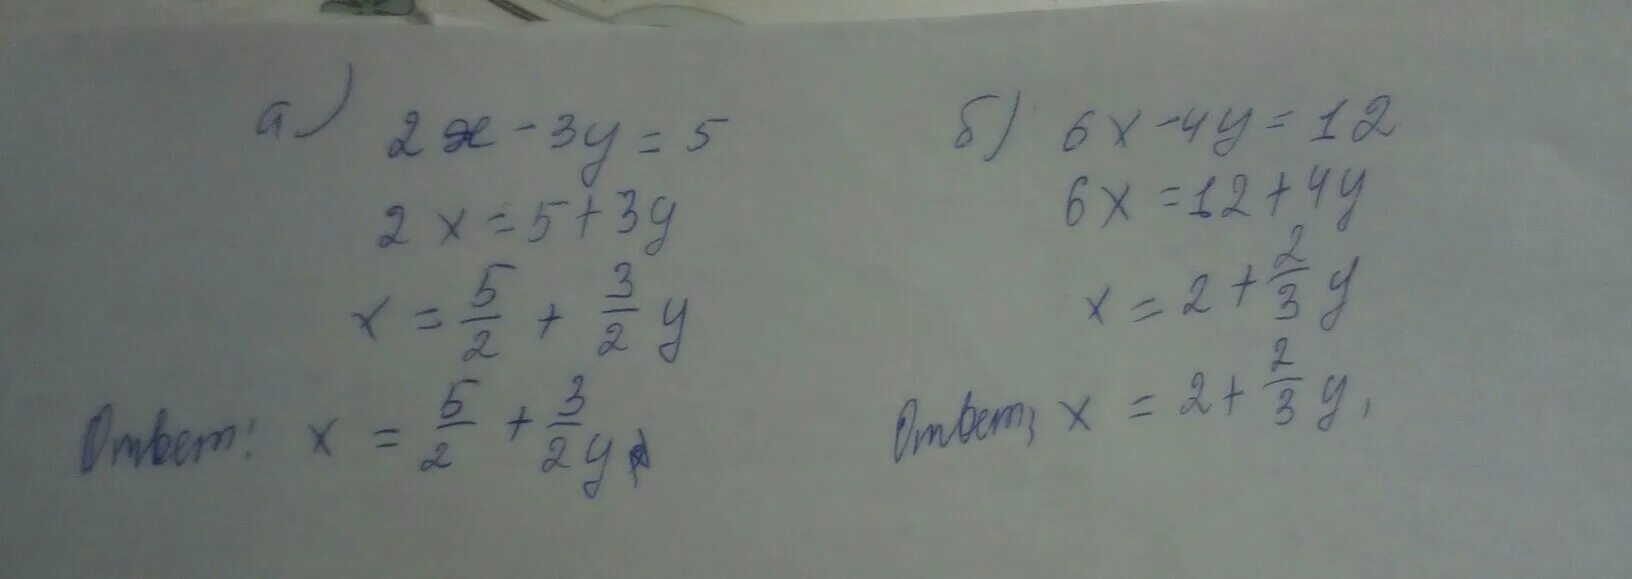 а) 2x - 3y = 5
2x = 5 + 3y
x = 5/2 + 3/2 y
Ответ: x = 5/2 + 3/2 y
б) 6x - 4y = 12
6x = 12 + 4y
x = 2 + 2/3 y
Ответ; x = 2 + 2/3 y,